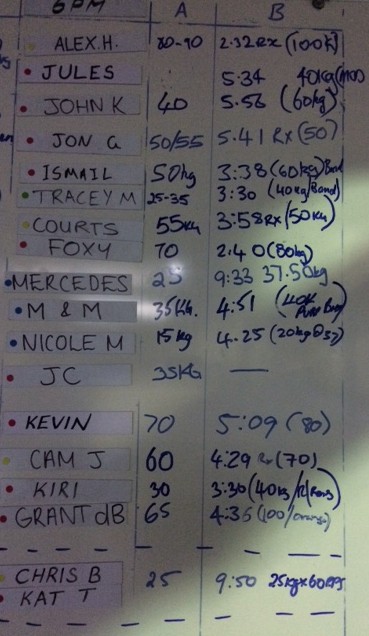 6PM A B
ALEX.H. 80-90 2.32RX (100K)
JULES 5.34 40kg
JOHN K 40 5.56 (60kg)
JON G 50/55 5.41 RX (50)
ISMAIL 50kg 3:38 (60kg) Band
TRACEY M 25-35 3:30 (40kg/Band)
COURTS 55KG 3:58RX (50Kg)
FOXY 70 2:40 (80kg)
MERCEDES 25 9:33 37.50kg
M & M 35KG. 4:51
NICOLE M 15kg 4.25 (20kg
JC 35KG —
KEVIN 70 5:09 (80)
CAM J 60 4:29 Rx (70)
KIRI 30 3:30 (40kg
GRANT dB 65 4:35 (100/orange)
CHRIS B 25 9:50 25kgx60reps
KAT T